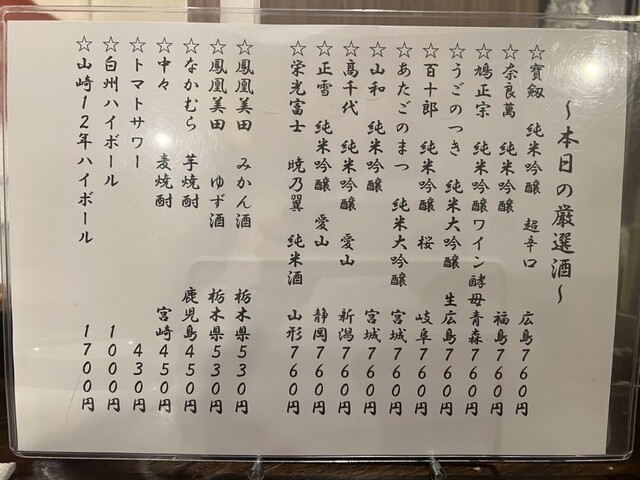 ～本日の厳選酒～
☆寶剱 純米吟醸 超辛口 広島760円
☆奈良萬 純米吟醸 福島760円
☆鳩正宗 純米吟醸ワイン酵母 青森760円
☆うごのつき 純米大吟醸 生 広島760円
☆百十郎 純米吟醸 桜 岐阜760円
☆あたごのまつ 純米大吟醸 宮城760円
☆山和 純米吟醸 宮城760円
☆髙千代 純米吟醸 愛山 新潟760円
☆正雪 純米吟醸 愛山 静岡760円
☆栄光富士 暁乃翼 純米酒 山形760円
☆鳳凰美田 みかん酒 栃木県530円
☆鳳凰美田 ゆず酒 栃木県530円
☆なかむら 芋焼酎 鹿児島450円
☆中々 麦焼酎 宮崎450円
☆トマトサワー 430円
☆白州ハイボール 1000円
☆山崎12年ハイボール 1700円